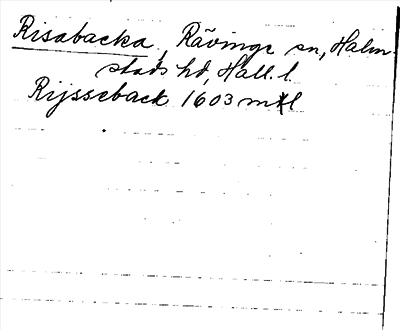 Risabacka, Rävinge sn, Halm-
stads hd, Hall. l
Rijsseback 1603 mtl